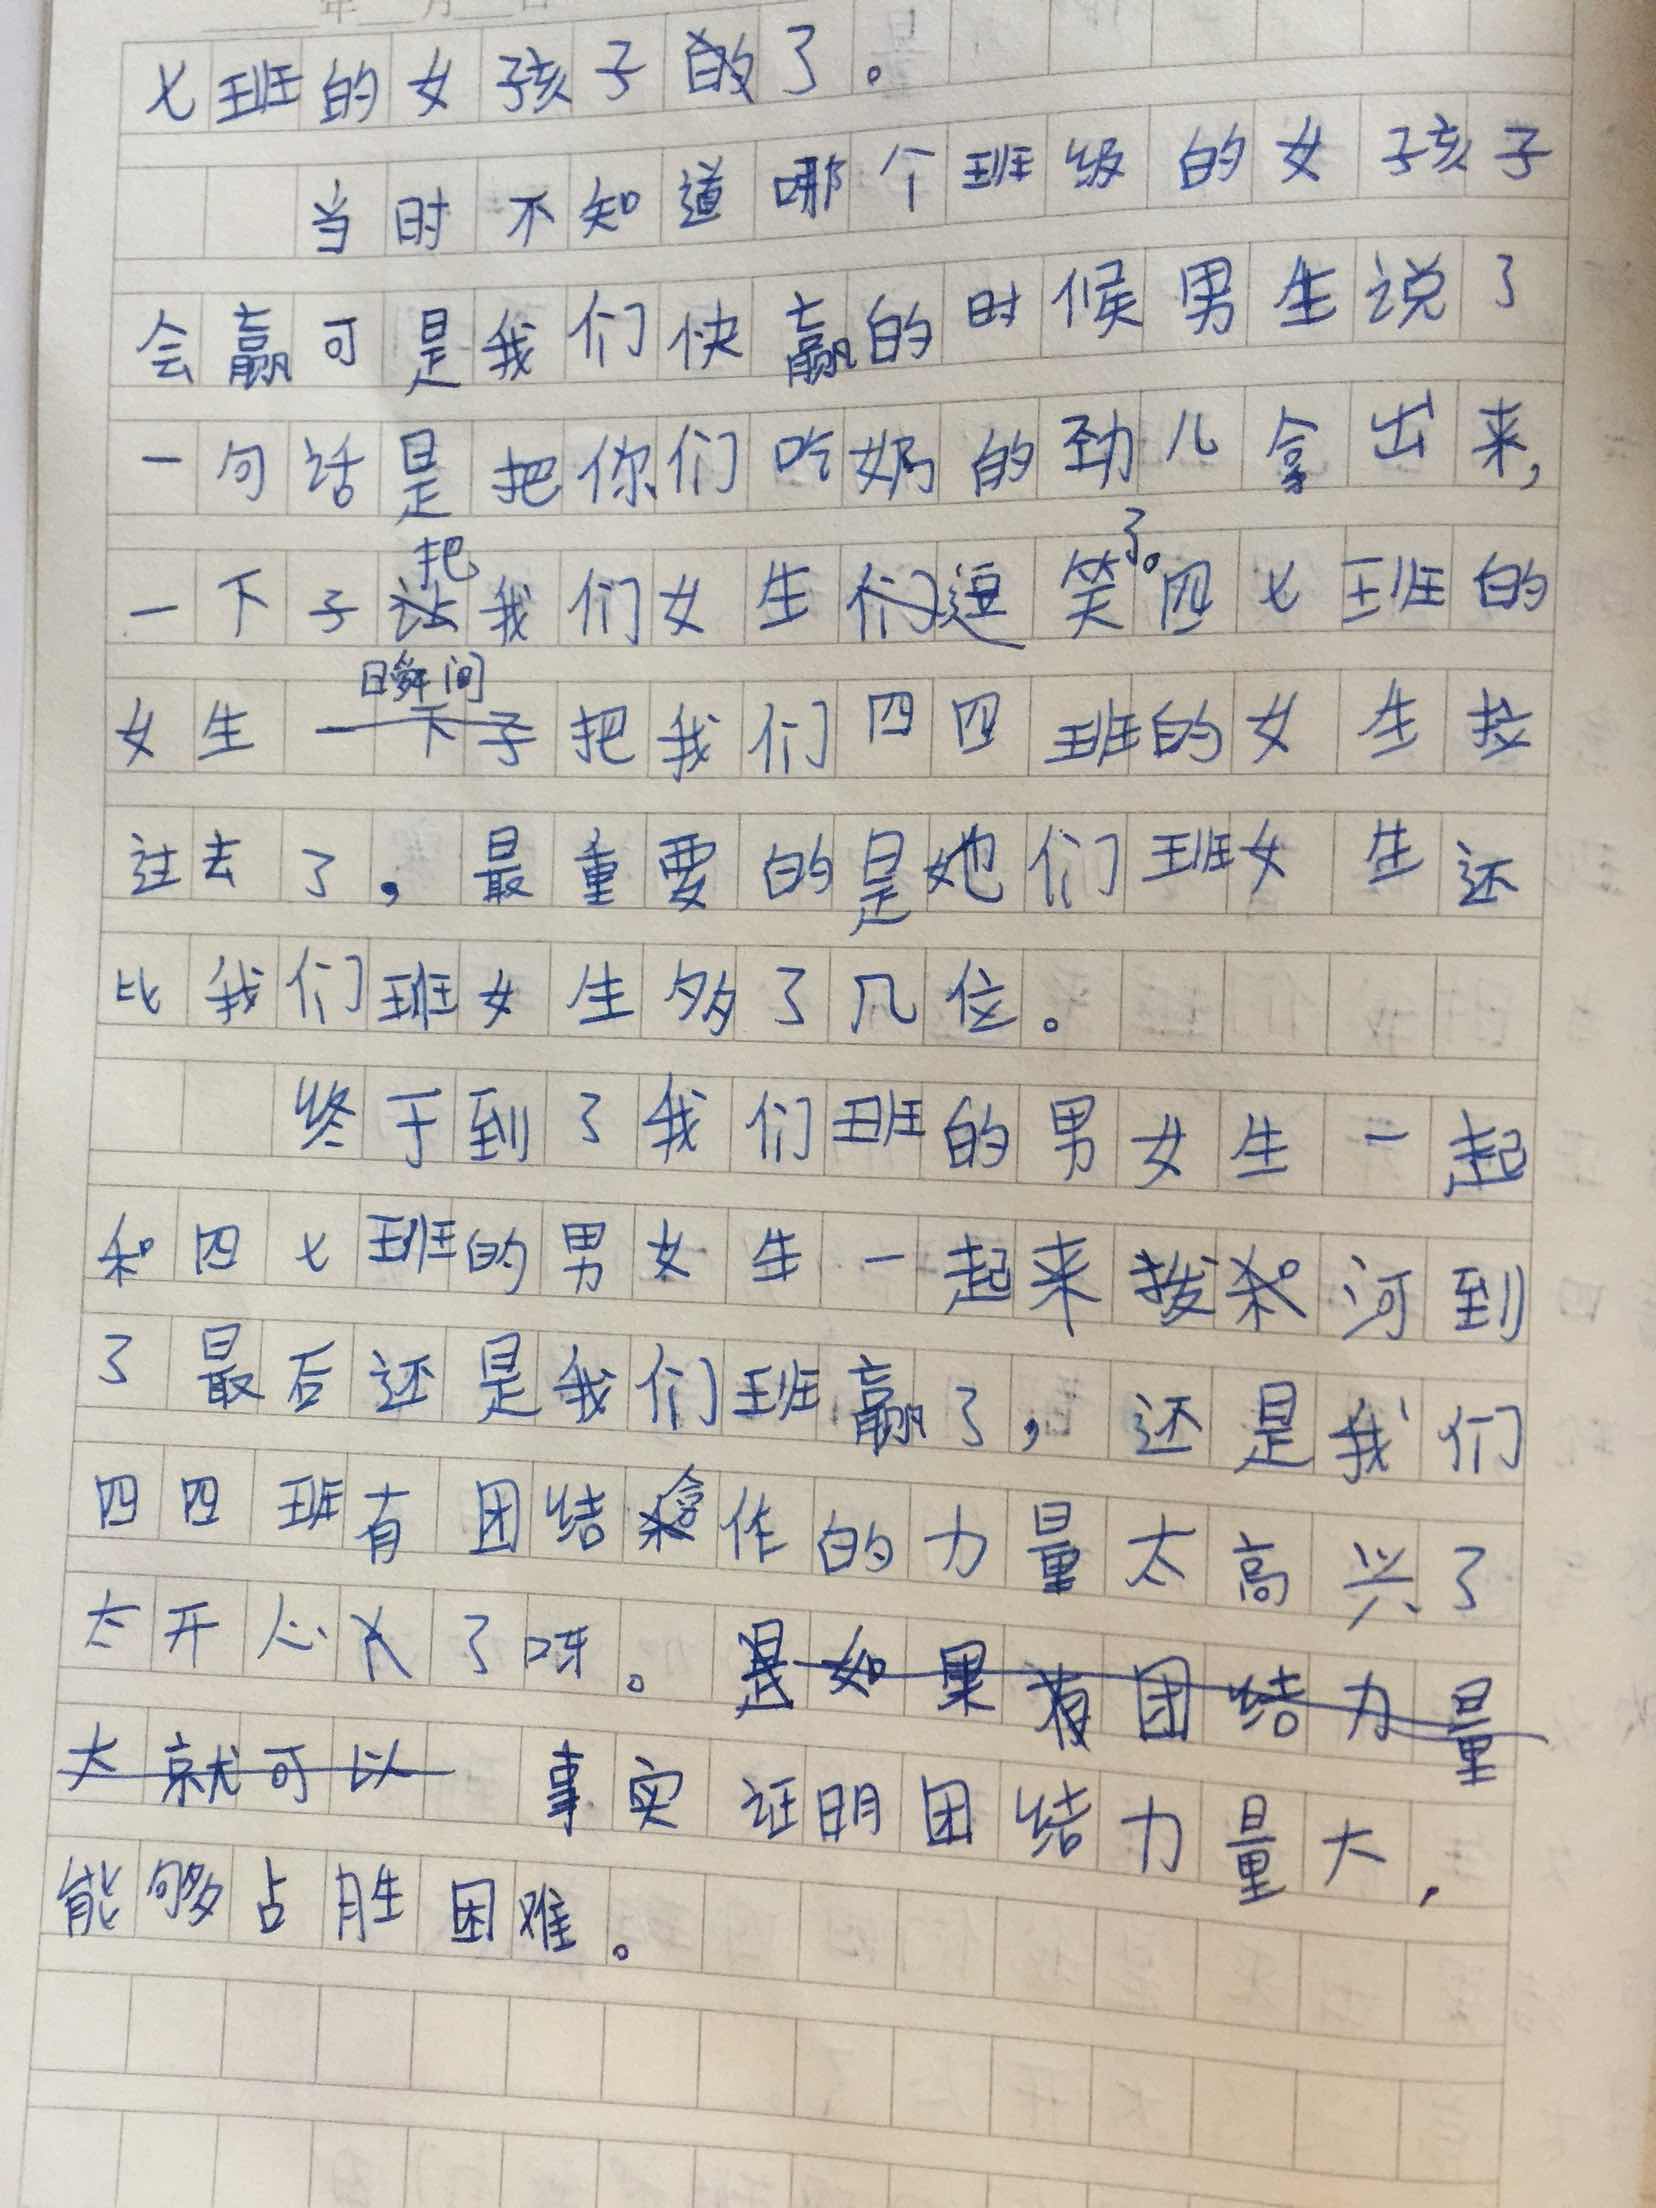 年 月 日
七班的女孩子了。
当时不知道哪个班级的女孩子
会赢可是我们快赢的时候男生说了
一句话是把你们吃奶的劲儿拿出来,
一下子把我们女生逗笑了。四七班的
女生瞬间把我们四四班的女生拉
过去了,最重要的是她们班女生还
比我们班女生多了几位。
终于到了我们班的男女生一起
和四七班的男女生一起来拔河到
了最后还是我们班赢了,还是我们
四四班有团结合作的力量太高兴了
太开心了呀。是如果有团结力量
大就可以 事实证明团结力量大,
能够占胜困难。